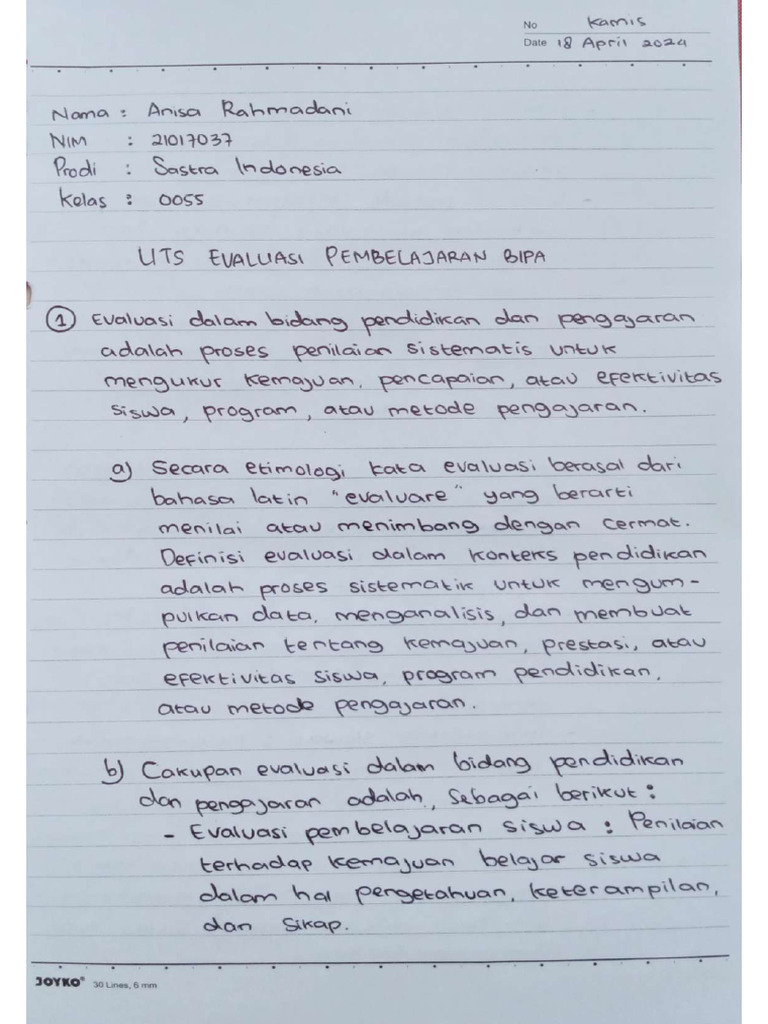 No Kamis
Date 18 April 2024
Nama : Anisa Rahmadani
NIM : 21017037
Prodi : Sastra Indonesia
Kelas : 0055
UTS EVALUASI PEMBELAJARAN BIPA
1 Evaluasi dalam bidang pendidikan dan pengajaran
adalah proses penilaian sistematis untuk
mengukur kemajuan, pencapaian, atau efektivitas
siswa, program, atau metode pengajaran.
a) Secara etimologi kata evaluasi berasal dari
bahasa latin "evaluare" yang berarti
menilai atau menimbang dengan cermat.
Definisi evaluasi dalam konteks pendidikan
adalah proses sistematik untuk mengum-
pulkan data, menganalisis, dan membuat
penilaian tentang kemajuan, prestasi, atau
efektivitas siswa, program pendidikan,
atau metode pengajaran.
b) Cakupan evaluasi dalam bidang pendidikan
dan pengajaran adalah, sebagai berikut :
- Evaluasi pembelajaran siswa : Penilaian
terhadap kemajuan belajar siswa
dalam hal pengetahuan, keterampilan,
dan sikap.
JOYKO® 30 Lines, 6 mm